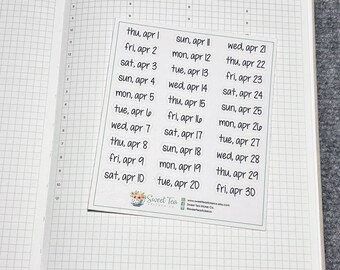 thu, apr 1
fri, apr 2
sat, apr 3
sun, apr 4
mon, apr 5
tue, apr 6
wed, apr 7
thu, apr 8
fri, apr 9
sat, apr 10
sun, apr 11
mon, apr 12
tue, apr 13
wed, apr 14
thu, apr 15
fri, apr 16
sat, apr 17
sun, apr 18
mon, apr 19
tue, apr 20
wed, apr 21
thu, apr 22
fri, apr 23
sat, apr 24
sun, apr 25
mon, apr 26
tue, apr 27
wed, apr 28
thu, apr 29
fri, apr 30
Sweet Tea